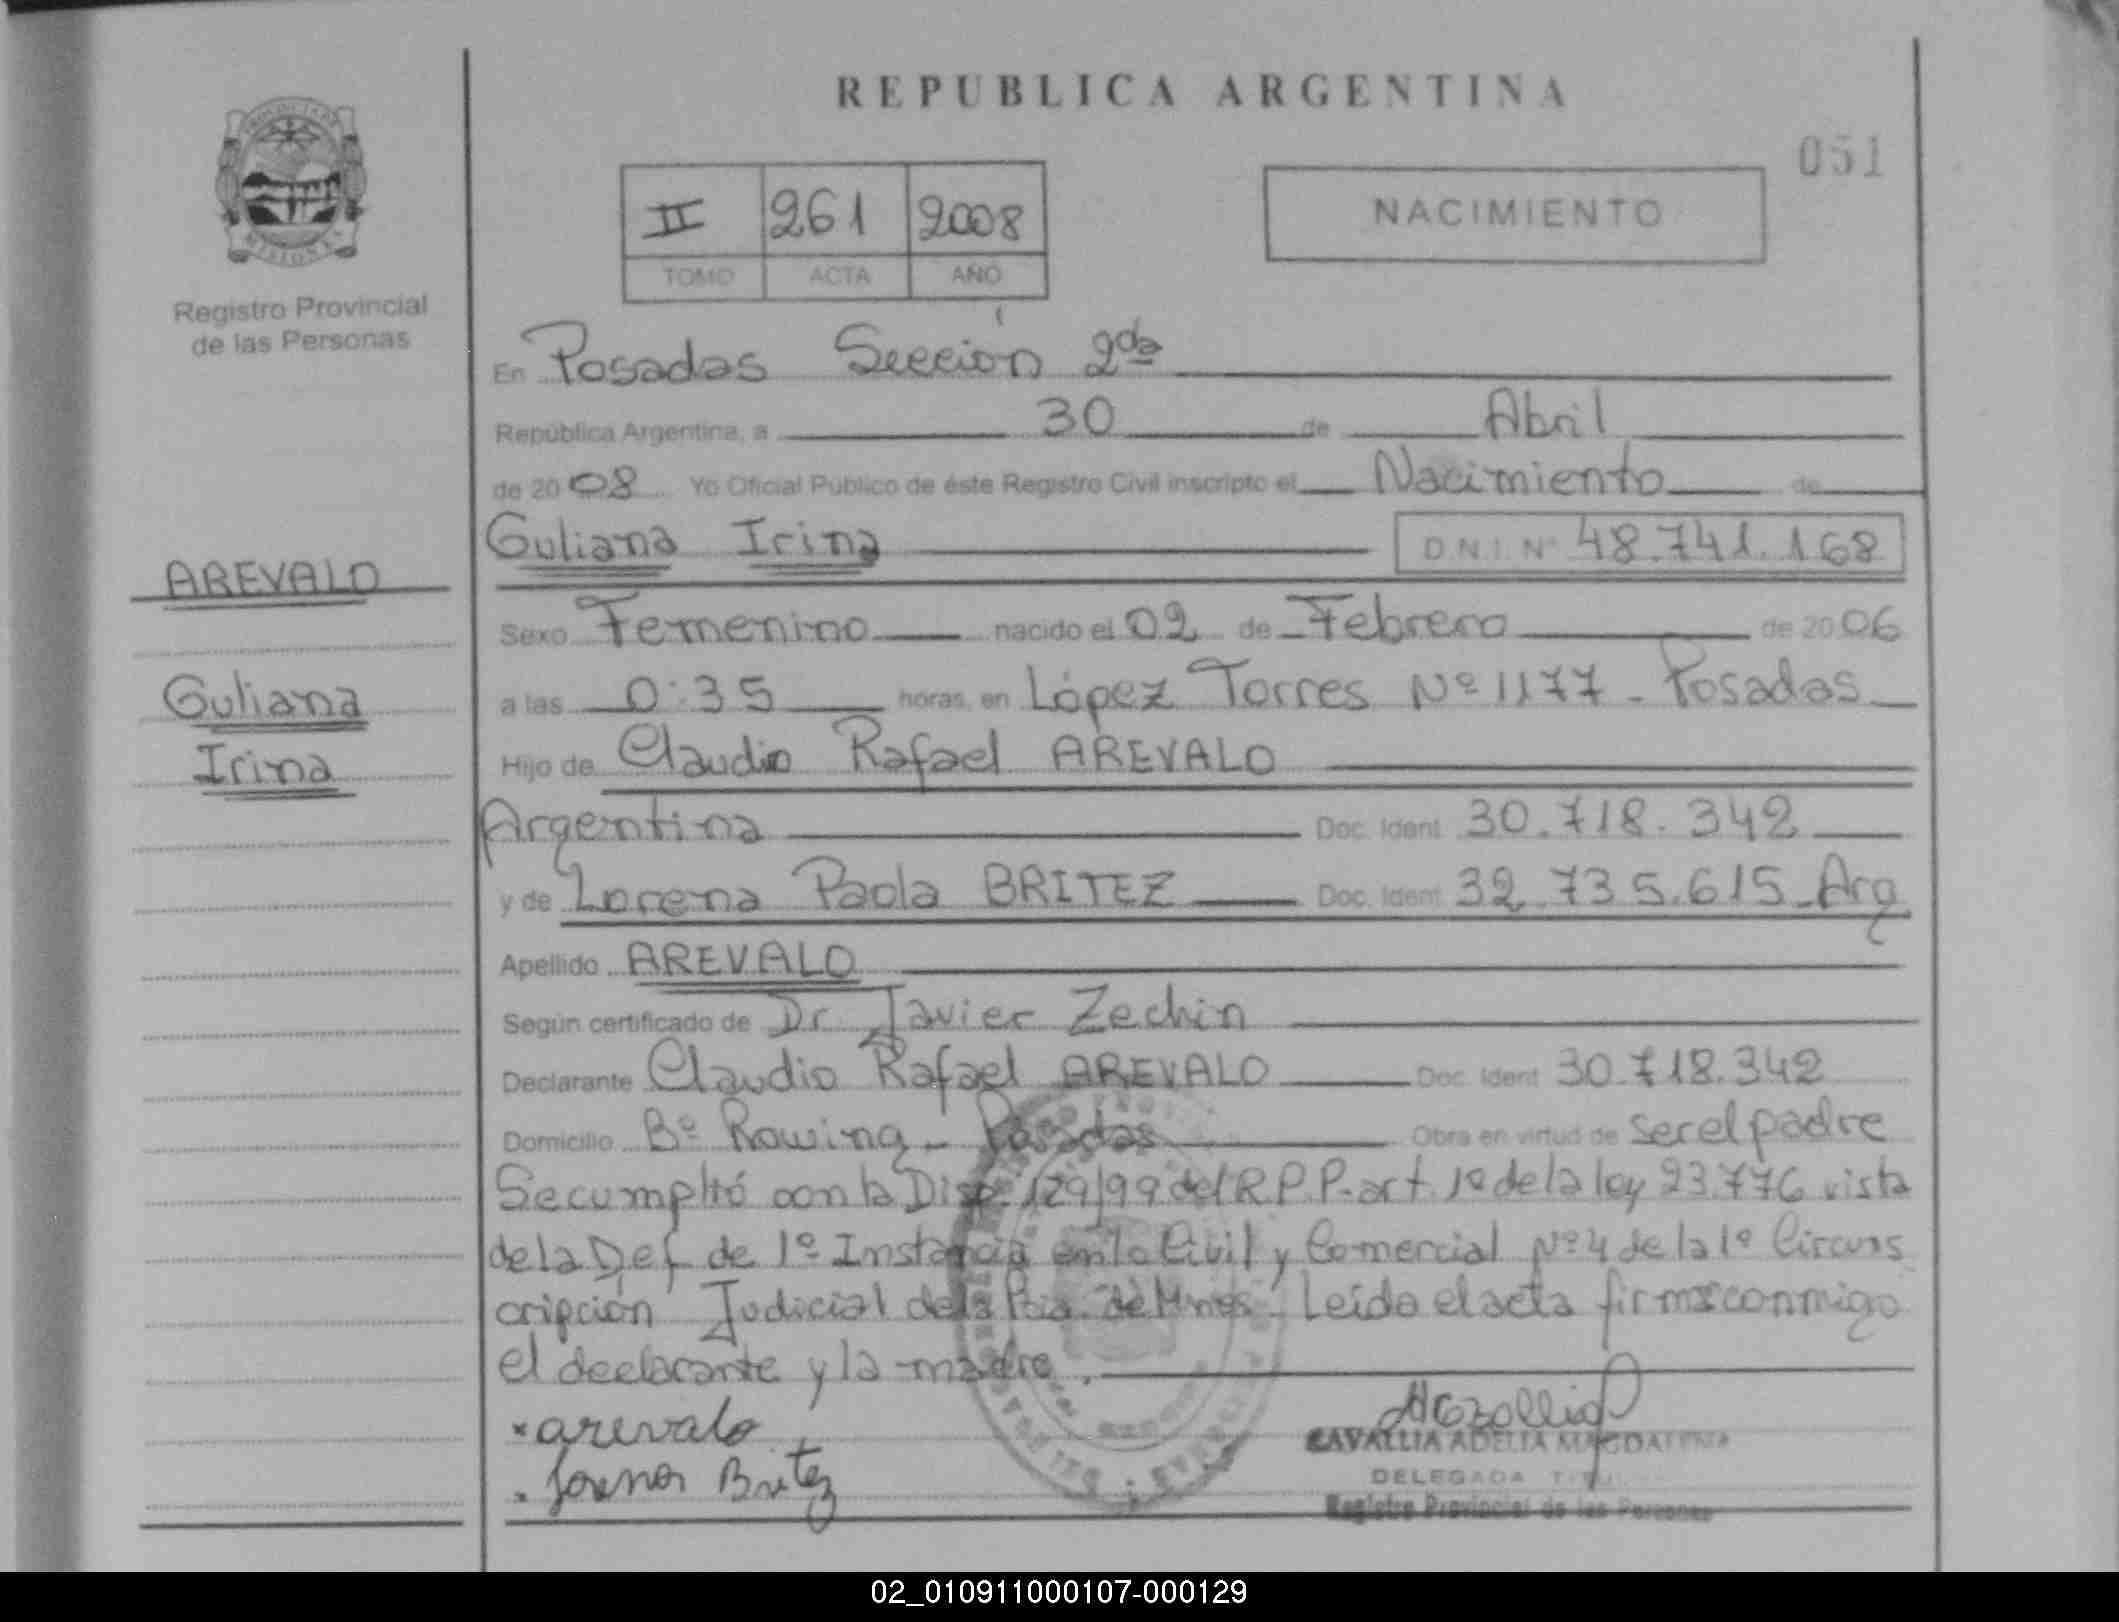 REPUBLICA ARGENTINA
051
PROVINCIA DE
MISIONES
Registro Provincial
de las Personas
II 261 2008
TOMO ACTA AÑO
NACIMIENTO
En Posadas Sección 2da
República Argentina, a 30 de Abril
de 2008 Yo Oficial Público de éste Registro Civil inscripto el Nacimiento de
Guliana Irina D.N.I. Nº 48.741.168
AREVALO
Guliana
Irina
Sexo Femenino nacido el 02 de Febrero de 2006
a las 0:35 horas, en López Torres Nº 1177 - Posadas
Hijo de Claudio Rafael AREVALO
Argentina Doc. Ident. 30.718.342
y de Lorena Paola BRITEZ Doc. Ident. 32.735.615 - Arg
Apellido AREVALO
Según certificado de Dr. Javier Zechin
Declarante Claudio Rafael AREVALO Doc. Ident. 30.718.342
Domicilio Bº Rowing - Posadas Obra en virtud de ser el padre
Se cumplió con la Disp. 129/99 del R.P.P. art. 1º de la ley 23.776 vista
de la Def. de 1º Instancia en lo Civil y Comercial Nº 4 de la 1º Circuns
cripción Judicial de la Pcia. de Mnes. Leída el acta firma conmigo
el declarante y la madre.
x arevalo
. Lorena Britez
CAVALLIA ADELIA MAGDALENA
DELEGADA
Registro Provincial de las Personas
02_010911000107-000129